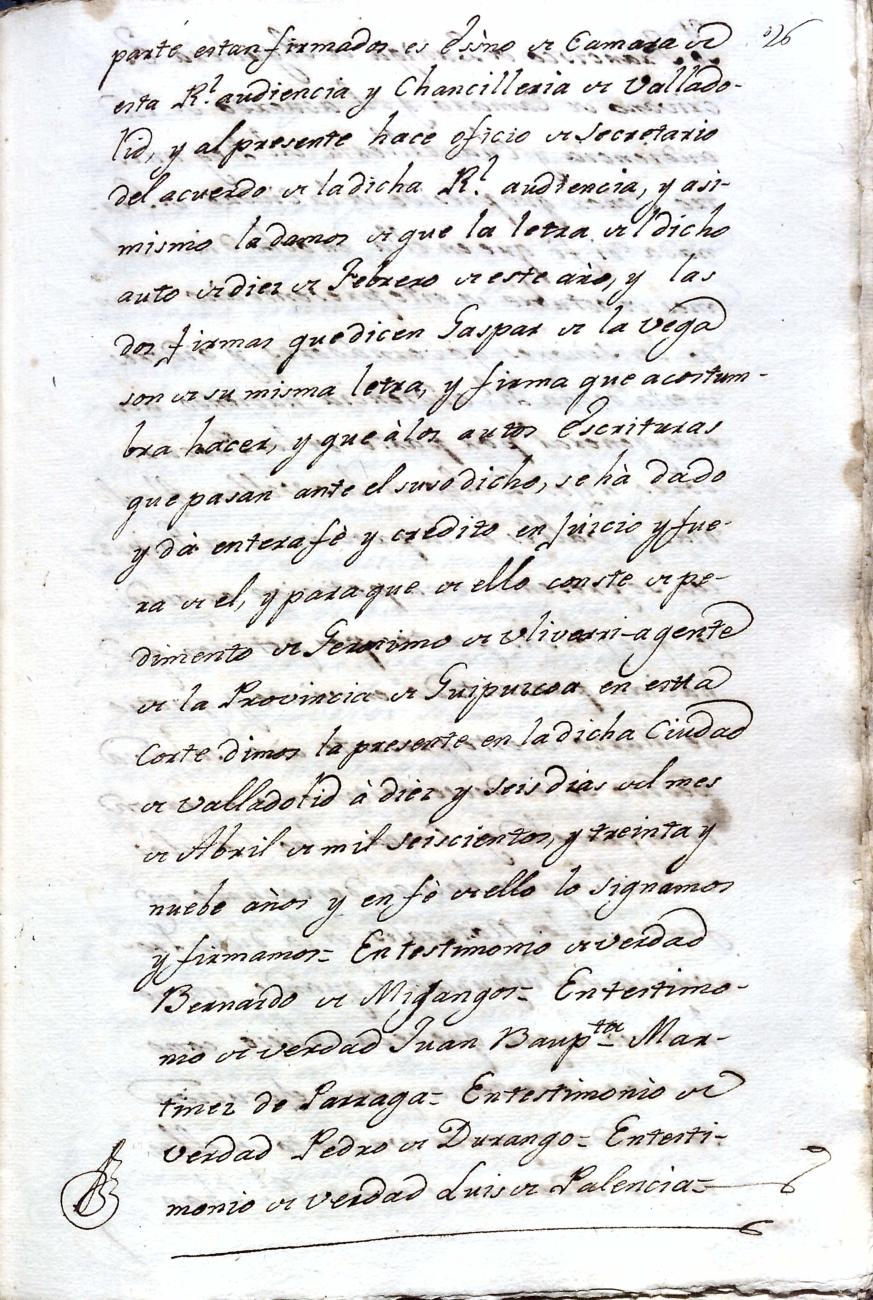 26
parte estan firmados es Essno de Camara de
esta Rl. audiencia y Chancilleria de Vallado-
lid, y al presente hace oficio de secretario
del acuerdo de la dicha Rl. audiencia, y asi-
mismo la damos de que la letra del dicho
auto de diez de Febrero de este año, y las
dos firmas que dicen Gaspar de la Vega
son de su misma letra, y firma que acostum-
bra hacer, y que à los autos Escrituras
que pasan ante el susodicho, se hà dado
y dà entera fè y credito en Juicio y fue-
ra de el, y para que de ello conste de pe-
dimento de Geronimo de Uliverri agente
de la Provincia de Guipuzcoa en esta
Corte dimos la presente en la dicha Ciudad
de Valladolid à diez y seis dias del mes
de Abril de mil seiscientos, y treinta y
nuebe años y en fè de ello lo signamos
y firmamos= En testimonio de verdad
Bernardo de Mijangos= En testimo-
nio de verdad Juan Bauptta Mar-
tinez de Parraga= En testimonio de
verdad Pedro de Durango= En testi-
monio de verdad Luis de Palencia=